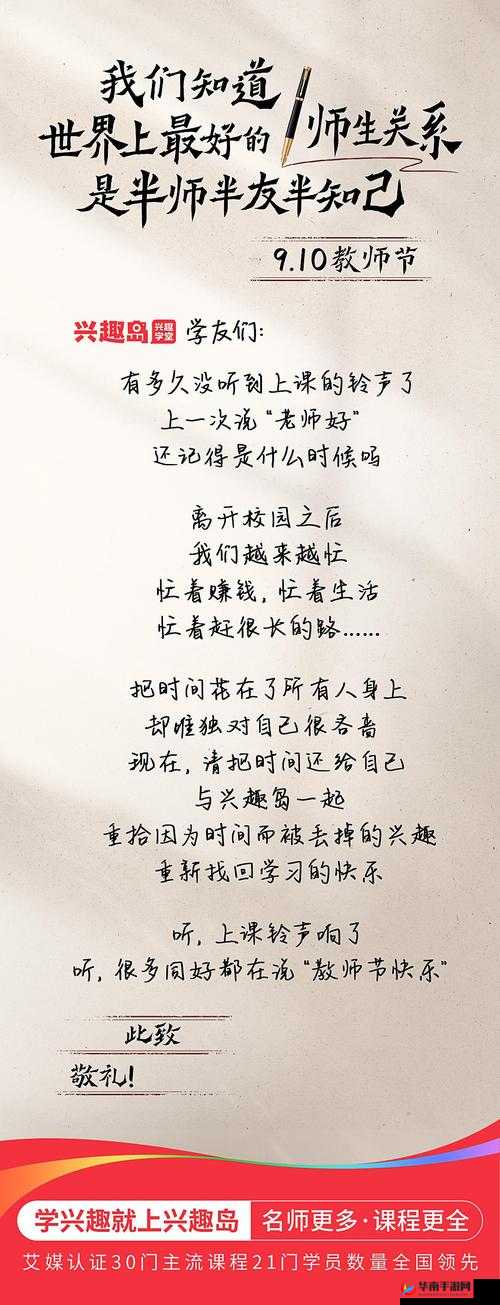 我们知道
世界上最好的师生关系
是半师半友半知己
9.10教师节
兴趣岛 兴趣学堂 学友们:
有多久没听到上课的铃声了
上一次说“老师好”
还记得是什么时候吗
离开校园之后
我们越来越忙
忙着赚钱,忙着生活
忙着赶很长的路......
把时间花在了所有人身上
却唯独对自己很吝啬
现在,请把时间还给自己
与兴趣岛一起
重拾因为时间而被丢掉的兴趣
重新找回学习的快乐
听,上课铃声响了
听,很多同好都在说“教师节快乐”
此致
敬礼!
学兴趣就上兴趣岛 名师更多·课程更全
艾媒认证30门主流课程21门学员数量全国领先
华南手游网